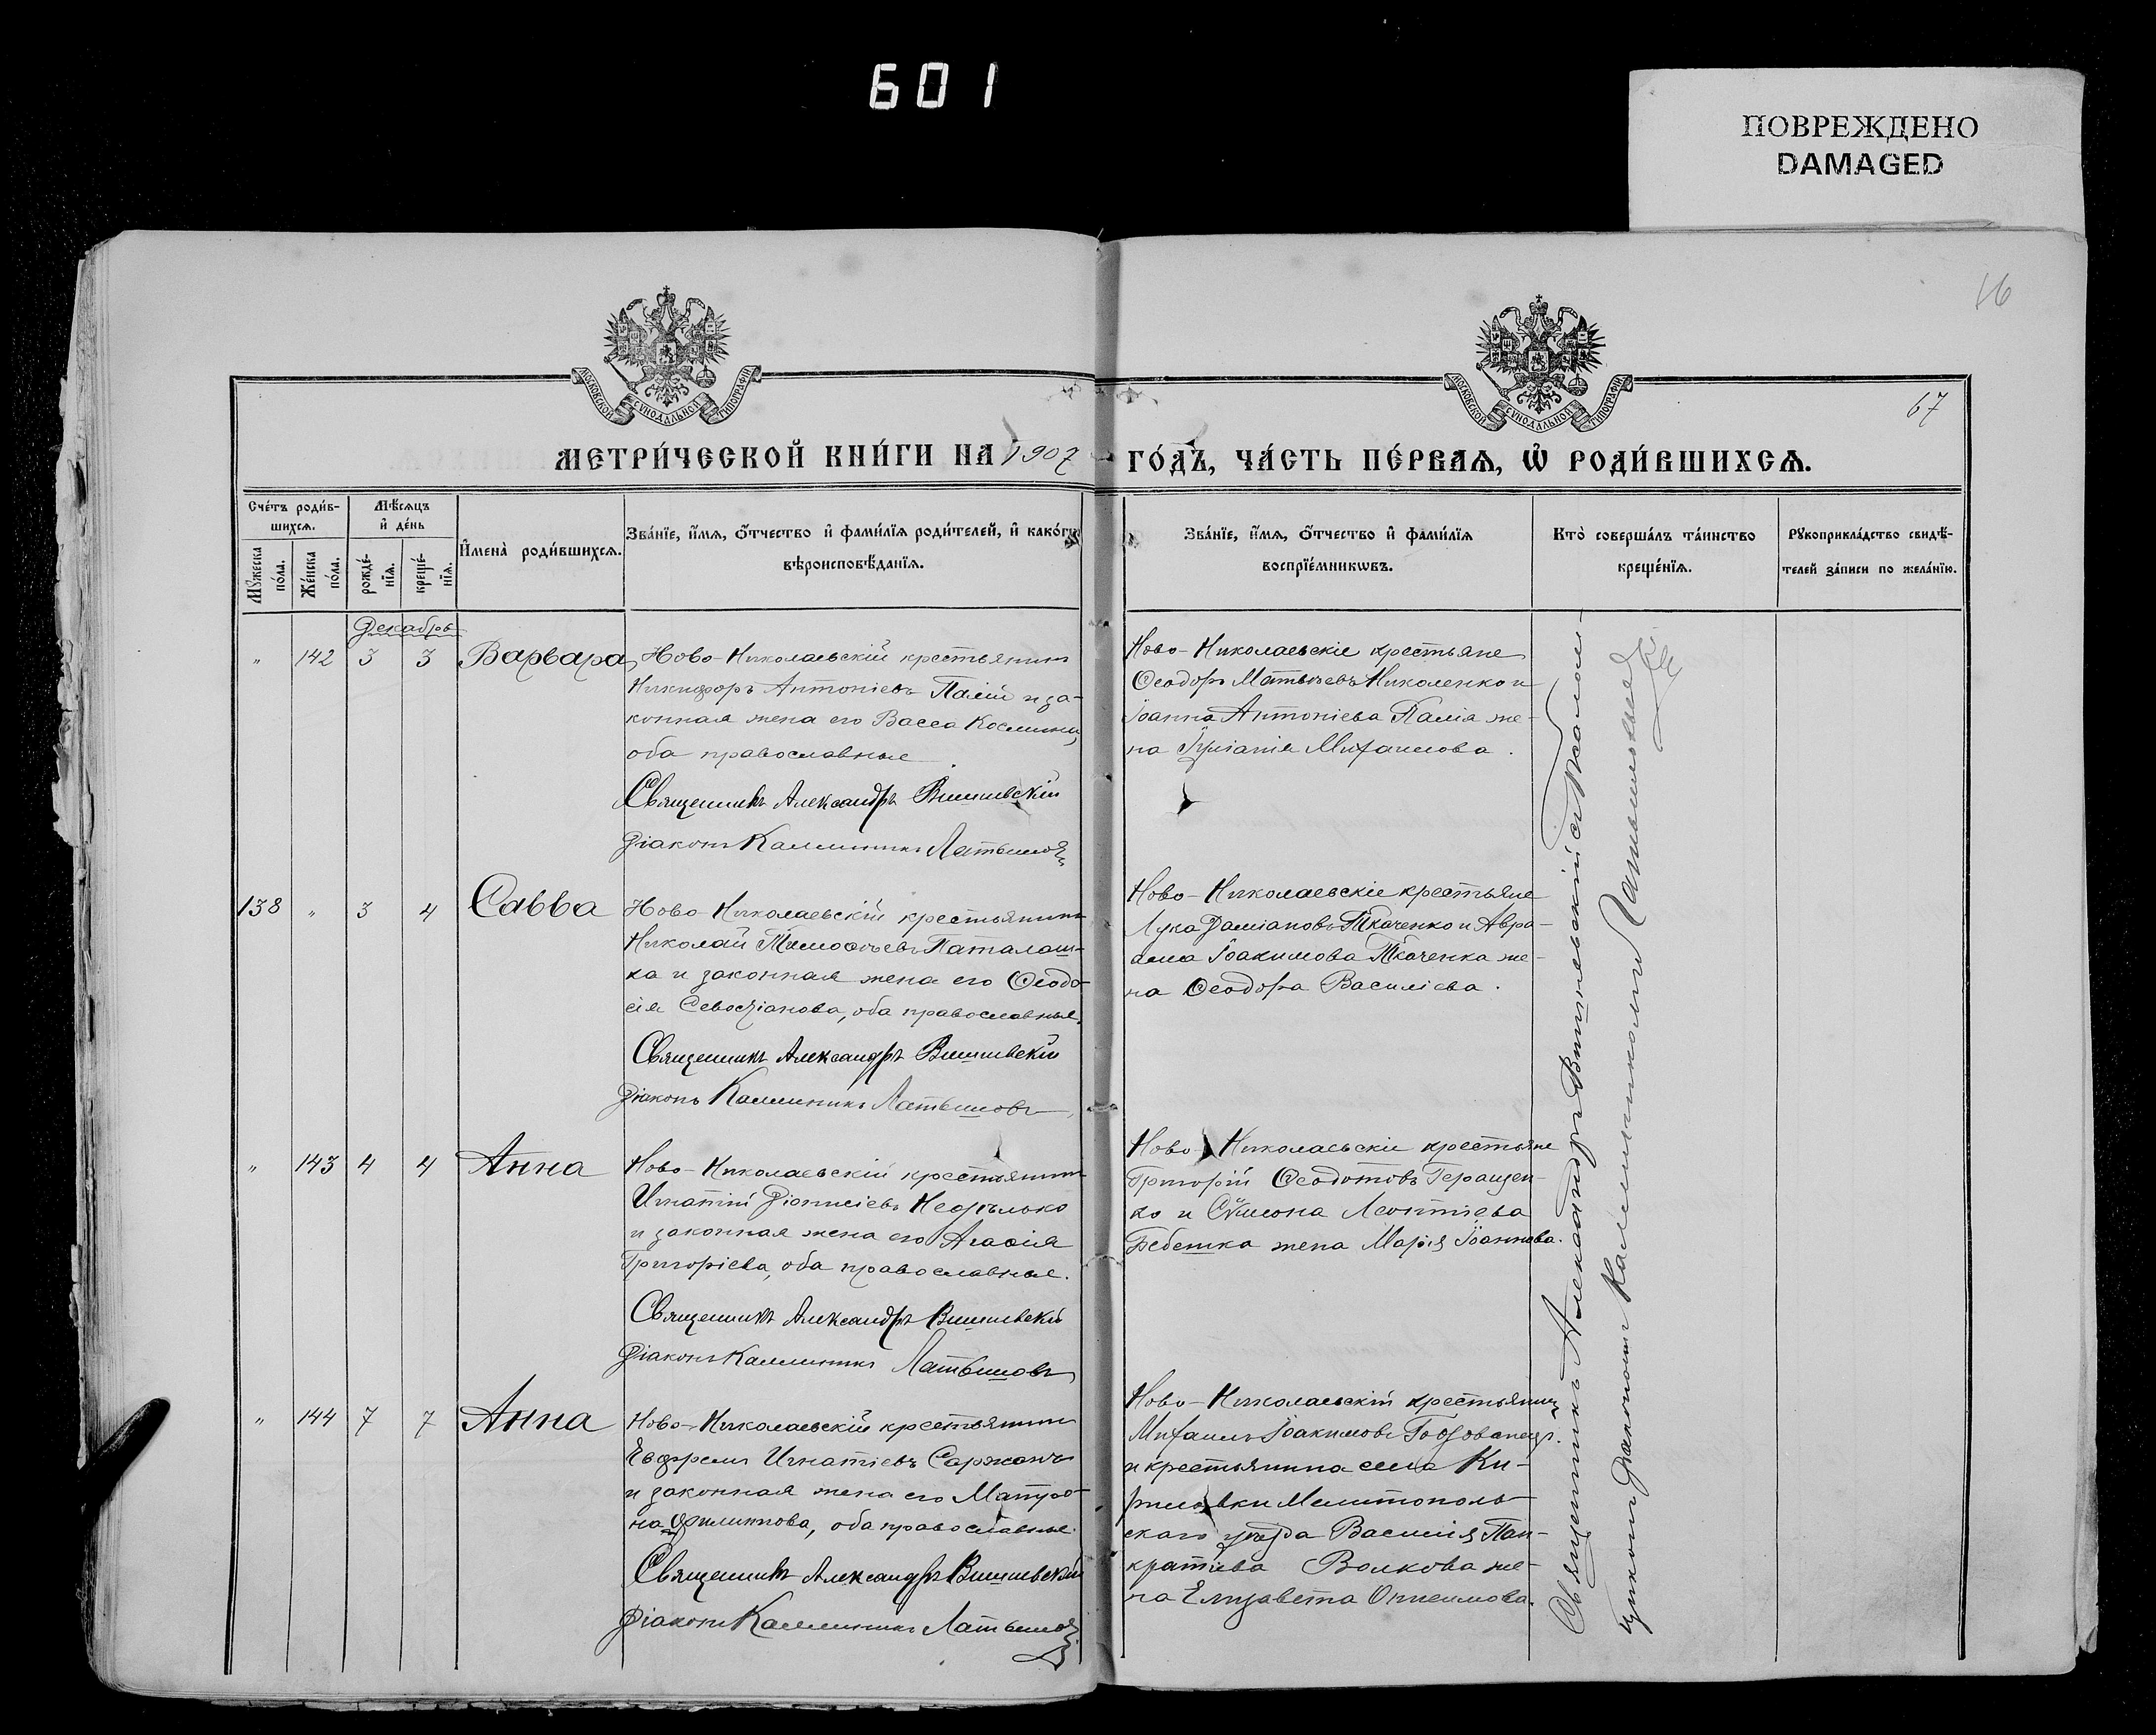 601
ПОВРЕЖДЕНО
DAMAGED
16
67
МОСКОВСКОЙ СѴНОДАЛЬНОЙ ТИПОГРАФІИ
МОСКОВСКОЙ СѴНОДАЛЬНОЙ ТИПОГРАФІИ
МЕТРИ́ЧЕСКОЙ КНИ́ГИ НА 1907 ГО́ДЪ, ЧА́СТЬ ПЕ́РВАѦ, Ѡ҆ РОДИ́ВШИХСѦ.
Сче́тъ роди́в-
шихсѧ.
Мѣ́сѧцъ
и҆ де́нь
Мꙋ́жеска по́ла.
Же́нска по́ла.
рожде́-нїѧ.
креще́-нїѧ.
И҆мена̀ роди́вшихсѧ.
Зва́нїе, и҆́мѧ, ѻ҆́тчество и҆ фами́лїѧ роди́телей, и҆ како́гѡ
вѣроисповѣ́данїѧ.
Зва́нїе, и҆́мѧ, ѻ҆́тчество и҆ фами́лїѧ
воспрїе́мникѡвъ.
Кто̀ соверша́лъ та́инство
креще́нїѧ.
Рꙋкоприкла́дство свидѣ́-
телей за́писи по жела́нїю.
Декабрь
„ 142 3 3 Варвара
Ново-Николаевскій крестьянинъ
Никифоръ Антоніевъ Палій и за-
конная жена его Васса Космина,
оба православные.
Священникъ Александръ Вишневскій
Діаконъ Каллиникъ Латышовъ
Ново-Николаевскіе крестьяне
Ѳеодоръ Матѳѣевъ Николенко и
Іоанна Антоніева Палія же-
на Іуліанія Михаилова.
138 „ 3 4 Савва
Ново-Николаевскій крестьянинъ
Николай Тимоѳѣевъ Паталаш-
ка и законная жена его Ѳеодо-
сія Севостіанова, оба православные.
Священникъ Александръ Вишневскій
Діаконъ Каллиникъ Латышовъ
Ново-Николаевскіе крестьяне
Лука Даміановъ Ткаченко и Авра-
ама Іоакимова Ткаченка же-
на Ѳеодора Василіева.
„ 143 4 4 Анна
Ново-Николаевскій крестьянинъ
Игнатій Діонисіевъ
и законная жена его Агаѳія
Григоріева, оба православные.
Священникъ Александръ Вишневскій
Діаконъ Каллиникъ Латышовъ
Ново-Николаевскіе крестьяне
Григорій Ѳеодотовъ Геращен-
ко и Сѵмеона Леонтіева
Бебешка жена Марія Іоаннова.
„ 144 7 7 Анна
Ново-Николаевскій крестьянинъ
Евфремъ Игнатіевъ Саржанъ
и законная жена его Матро-
на Филиппова, оба православные.
Священникъ Александръ Вишневскій
Діаконъ Каллиникъ Латышовъ
Ново-Николаевскій крестьянинъ
Михаилъ Іоакимовъ
и крестьянина села Ки-
риловки Мелитополь-
скаго уѣзда Василія Пан-
кратіева Волкова же-
на Елизавета Онисимова.
Священникъ Александръ Вишневскій съ псалом-
щикомъ Діакономъ Каллиникомъ Латышовымъ